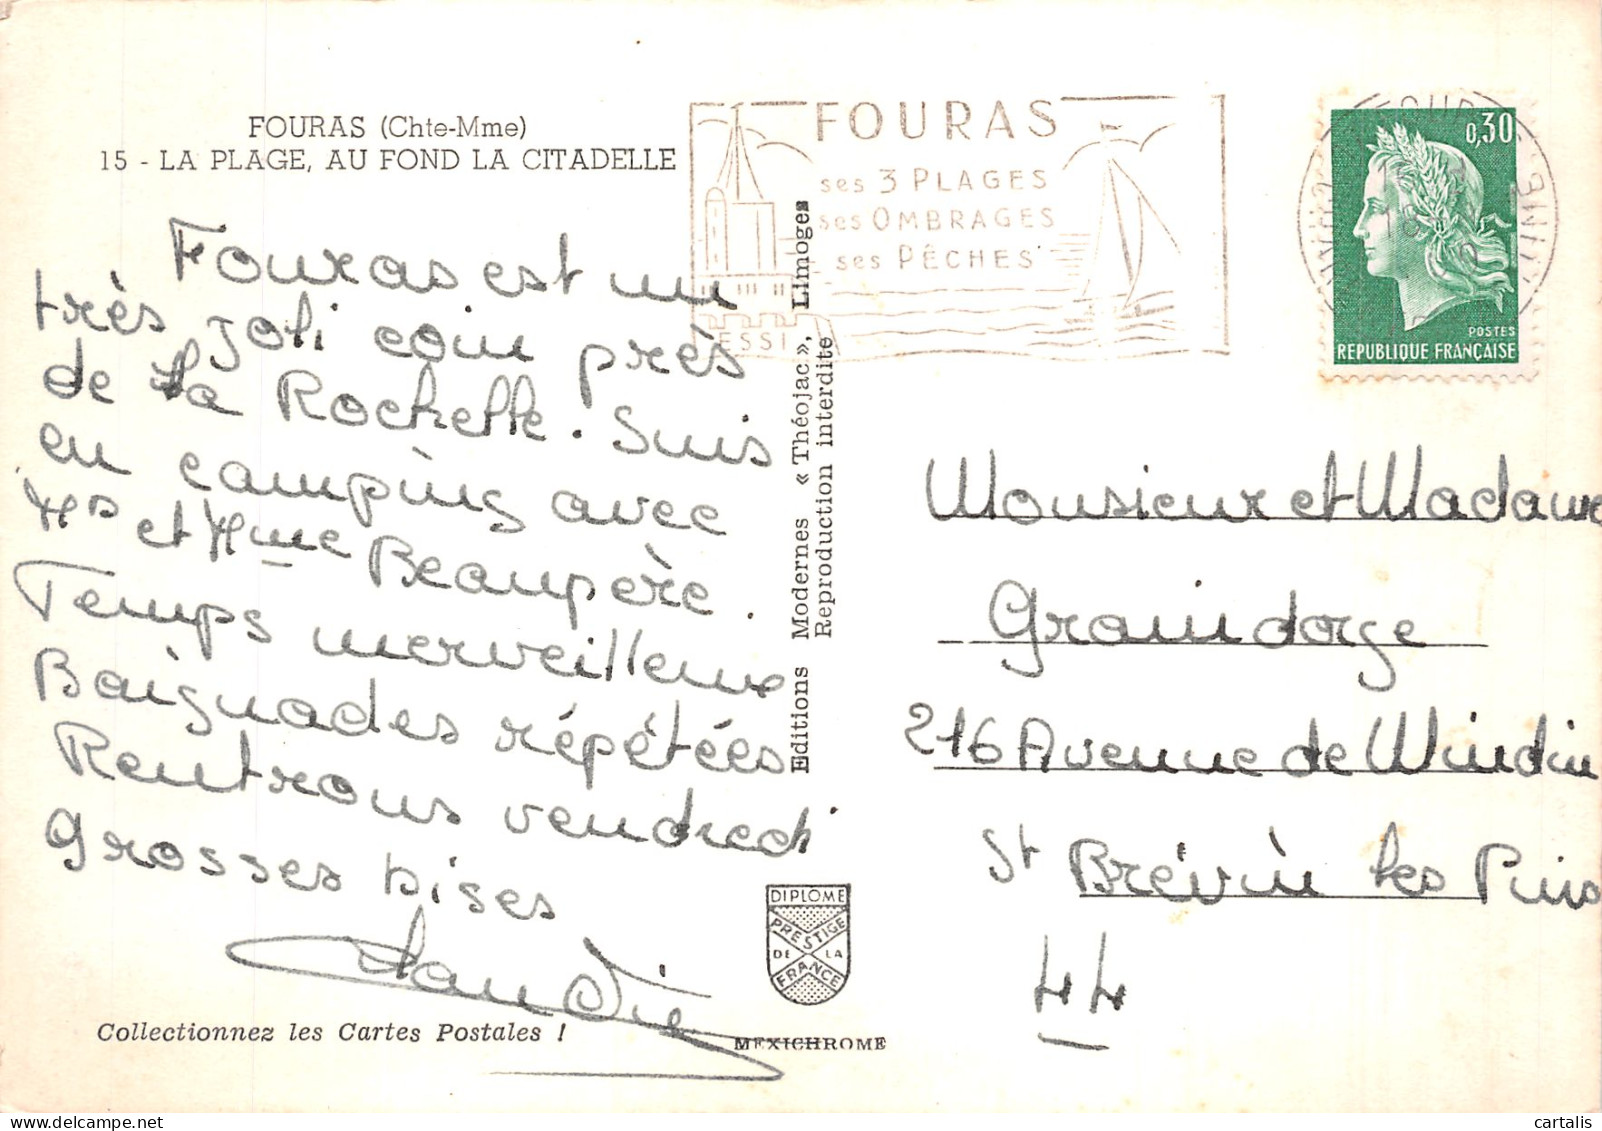 FOURAS (Chte-Mme)
15 - LA PLAGE, AU FOND LA CITADELLE
Fouras est un
très joli coin près
de La Rochelle. Suis
en camping avec
Mr et Mme Beaupère.
Temps merveilleux
Baignades répétées
Rentrons vendredi
grosses bises
Collectionnez les Cartes Postales !
Editions Modernes « Théojac », Limoges
Reproduction interdite
DIPLOME
PRESTIGE
DE LA
FRANCE
MEXICHROME
FOURAS
ses 3 PLAGES
ses OMBRAGES
ses PÊCHES
0,30
POSTES
REPUBLIQUE FRANÇAISE
Monsieur et Madame
Graindorge
216 Avenue de Mindin
St Brévin les Pins
44
cartalis | delcampe.net